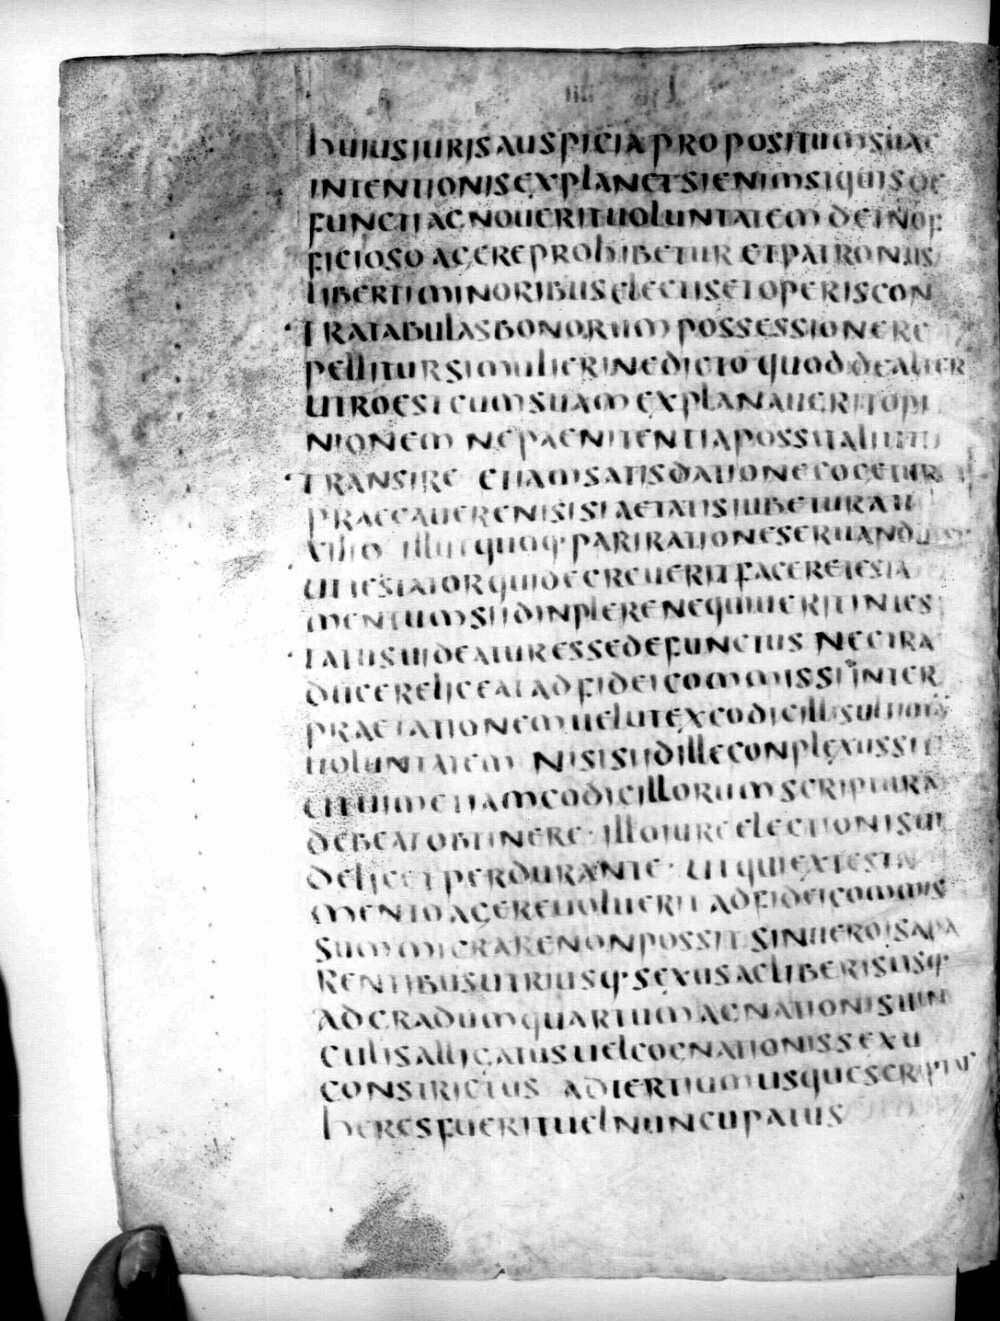 huiusiurisauspiciapropositumsuae
intentionisexplanetsienimsiquisde
functiagnoueritvoluntatemdeinof
ficiosoagereprohibeturetpatronus
libertiminoribuselectisetoperiscon
tratabulasbonorumpossessionere
pellitursimulierinedictoquoddealter
utroestcumsuamexplanaueritopi
nionem nepaenitentiapossitaliutiu
transire etiamsatisdationecogetur
praecauerenisisiaetatisiubeturau
xilio illutquoq·parirationeseruandu est
utiestatorquidecreueritfaceretesta
mentumsiidinplerenequiueritintes
tatusuideaturessedefunctus nectra
ducereliceatadfideicommissiinter
praetationemuelutexcodicillisultimam
uoluntatem nisisiidillecomplexussit
utuimetiamcodicillorumscriptura
debeatobtinere· illoiureelectionisui
delicetperdurante· utquiextesta
mentoagereuoluerit adfideicommis
summigrarenonpossit sinueroisapa
rentibusutriusq·sexusacliberisusq·
adgradumquartumagnationisuin
culisalligatusuelcognationissexu
constrictus adtertiumusquescriptus
heresfueritvelnuncupatus